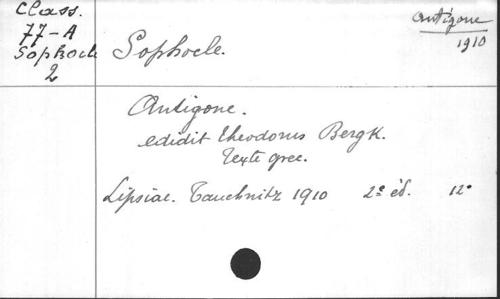 Class.
77-A
Sophocle
2
Antigone
1910
Sophocle.
Antigone.
edidit Theodorus Bergk.
Texte grec.
Lipsiae. Tauchnitz 1910 2e éd. 12°